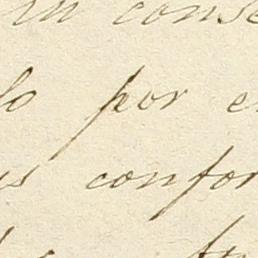 in conse
lo por e
s confor